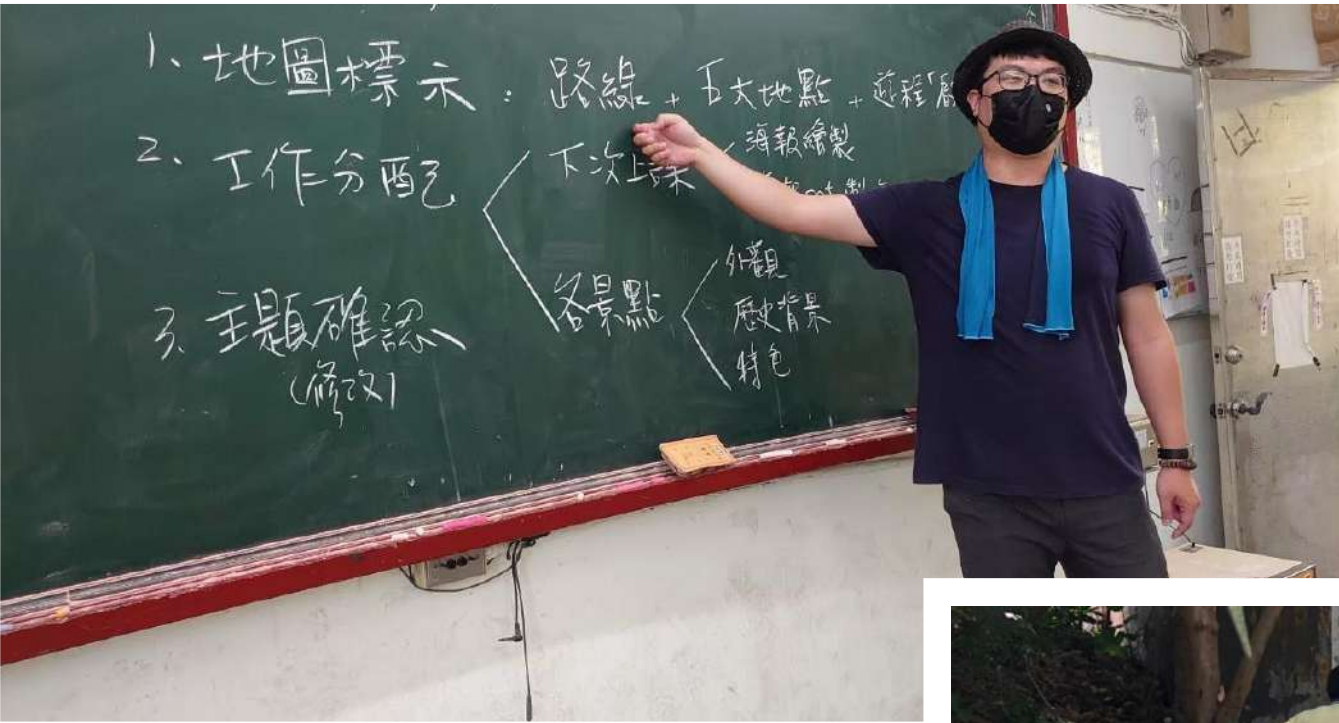 1、地圖標示：路線+五大地點+遊程「
2、工作分配
下次上課
海報繪製
各景點
外觀
歷史背景
特色
3、主題確認
(修改)